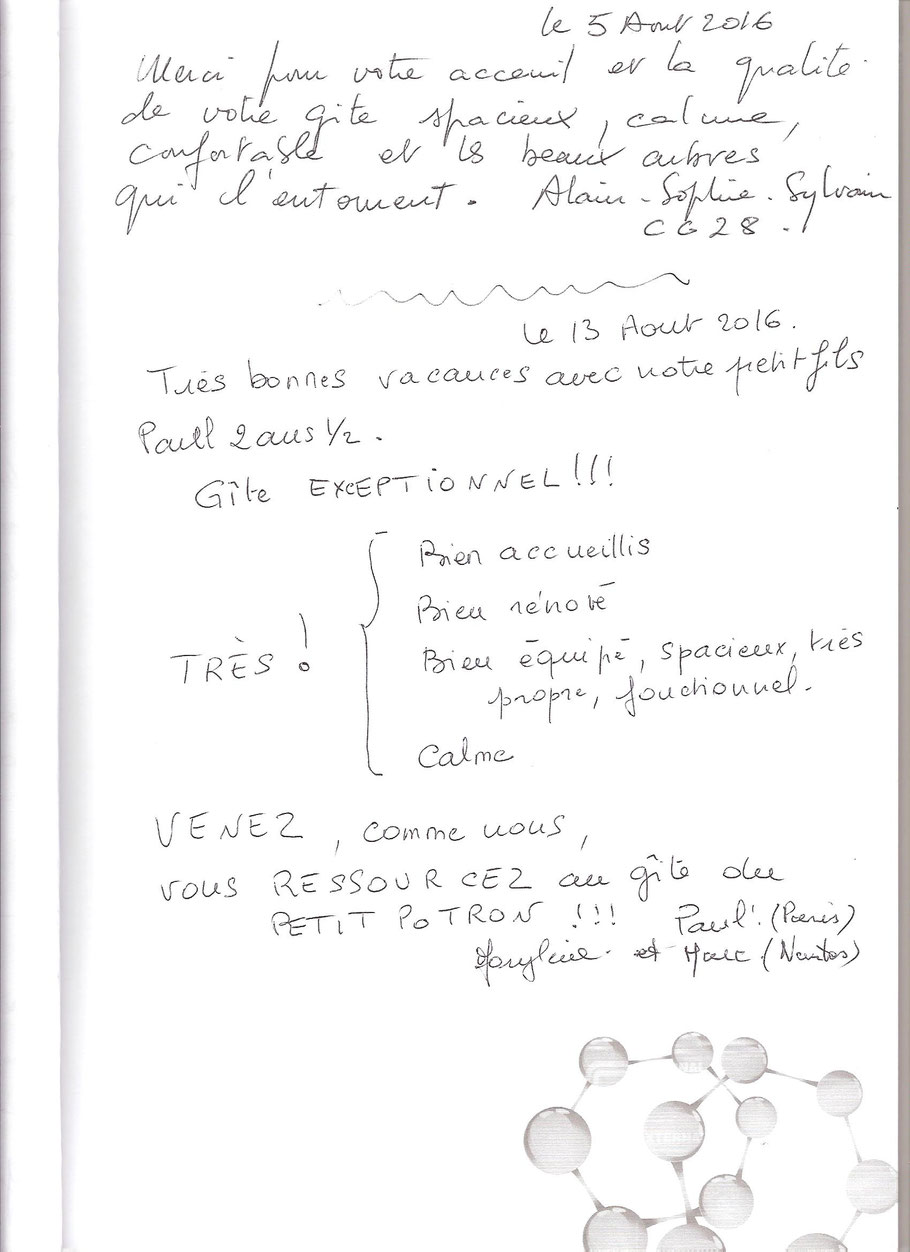 le 5 Aout 2016
Merci pour votre acceuil et la qualité
de votre gite spacieux, calme,
confortable et ls beaux arbres
qui l'entourent. Alain - Sophie - Sylvain
CG28.
le 13 Aout 2016.
Très bonnes vacances avec notre petit fils
Paul 2 ans 1/2.
Gîte EXCEPTIONNEL!!!
TRÈS !
Bien accueillis
Bien rénové
Bien équipé, spacieux, très
propre, fonctionnel.
Calme
VENEZ, comme nous,
vous RESSOURCEZ au gîte du
PETIT POTRON !!! Paul (Paris)
Maryline et Marc (Nantes)